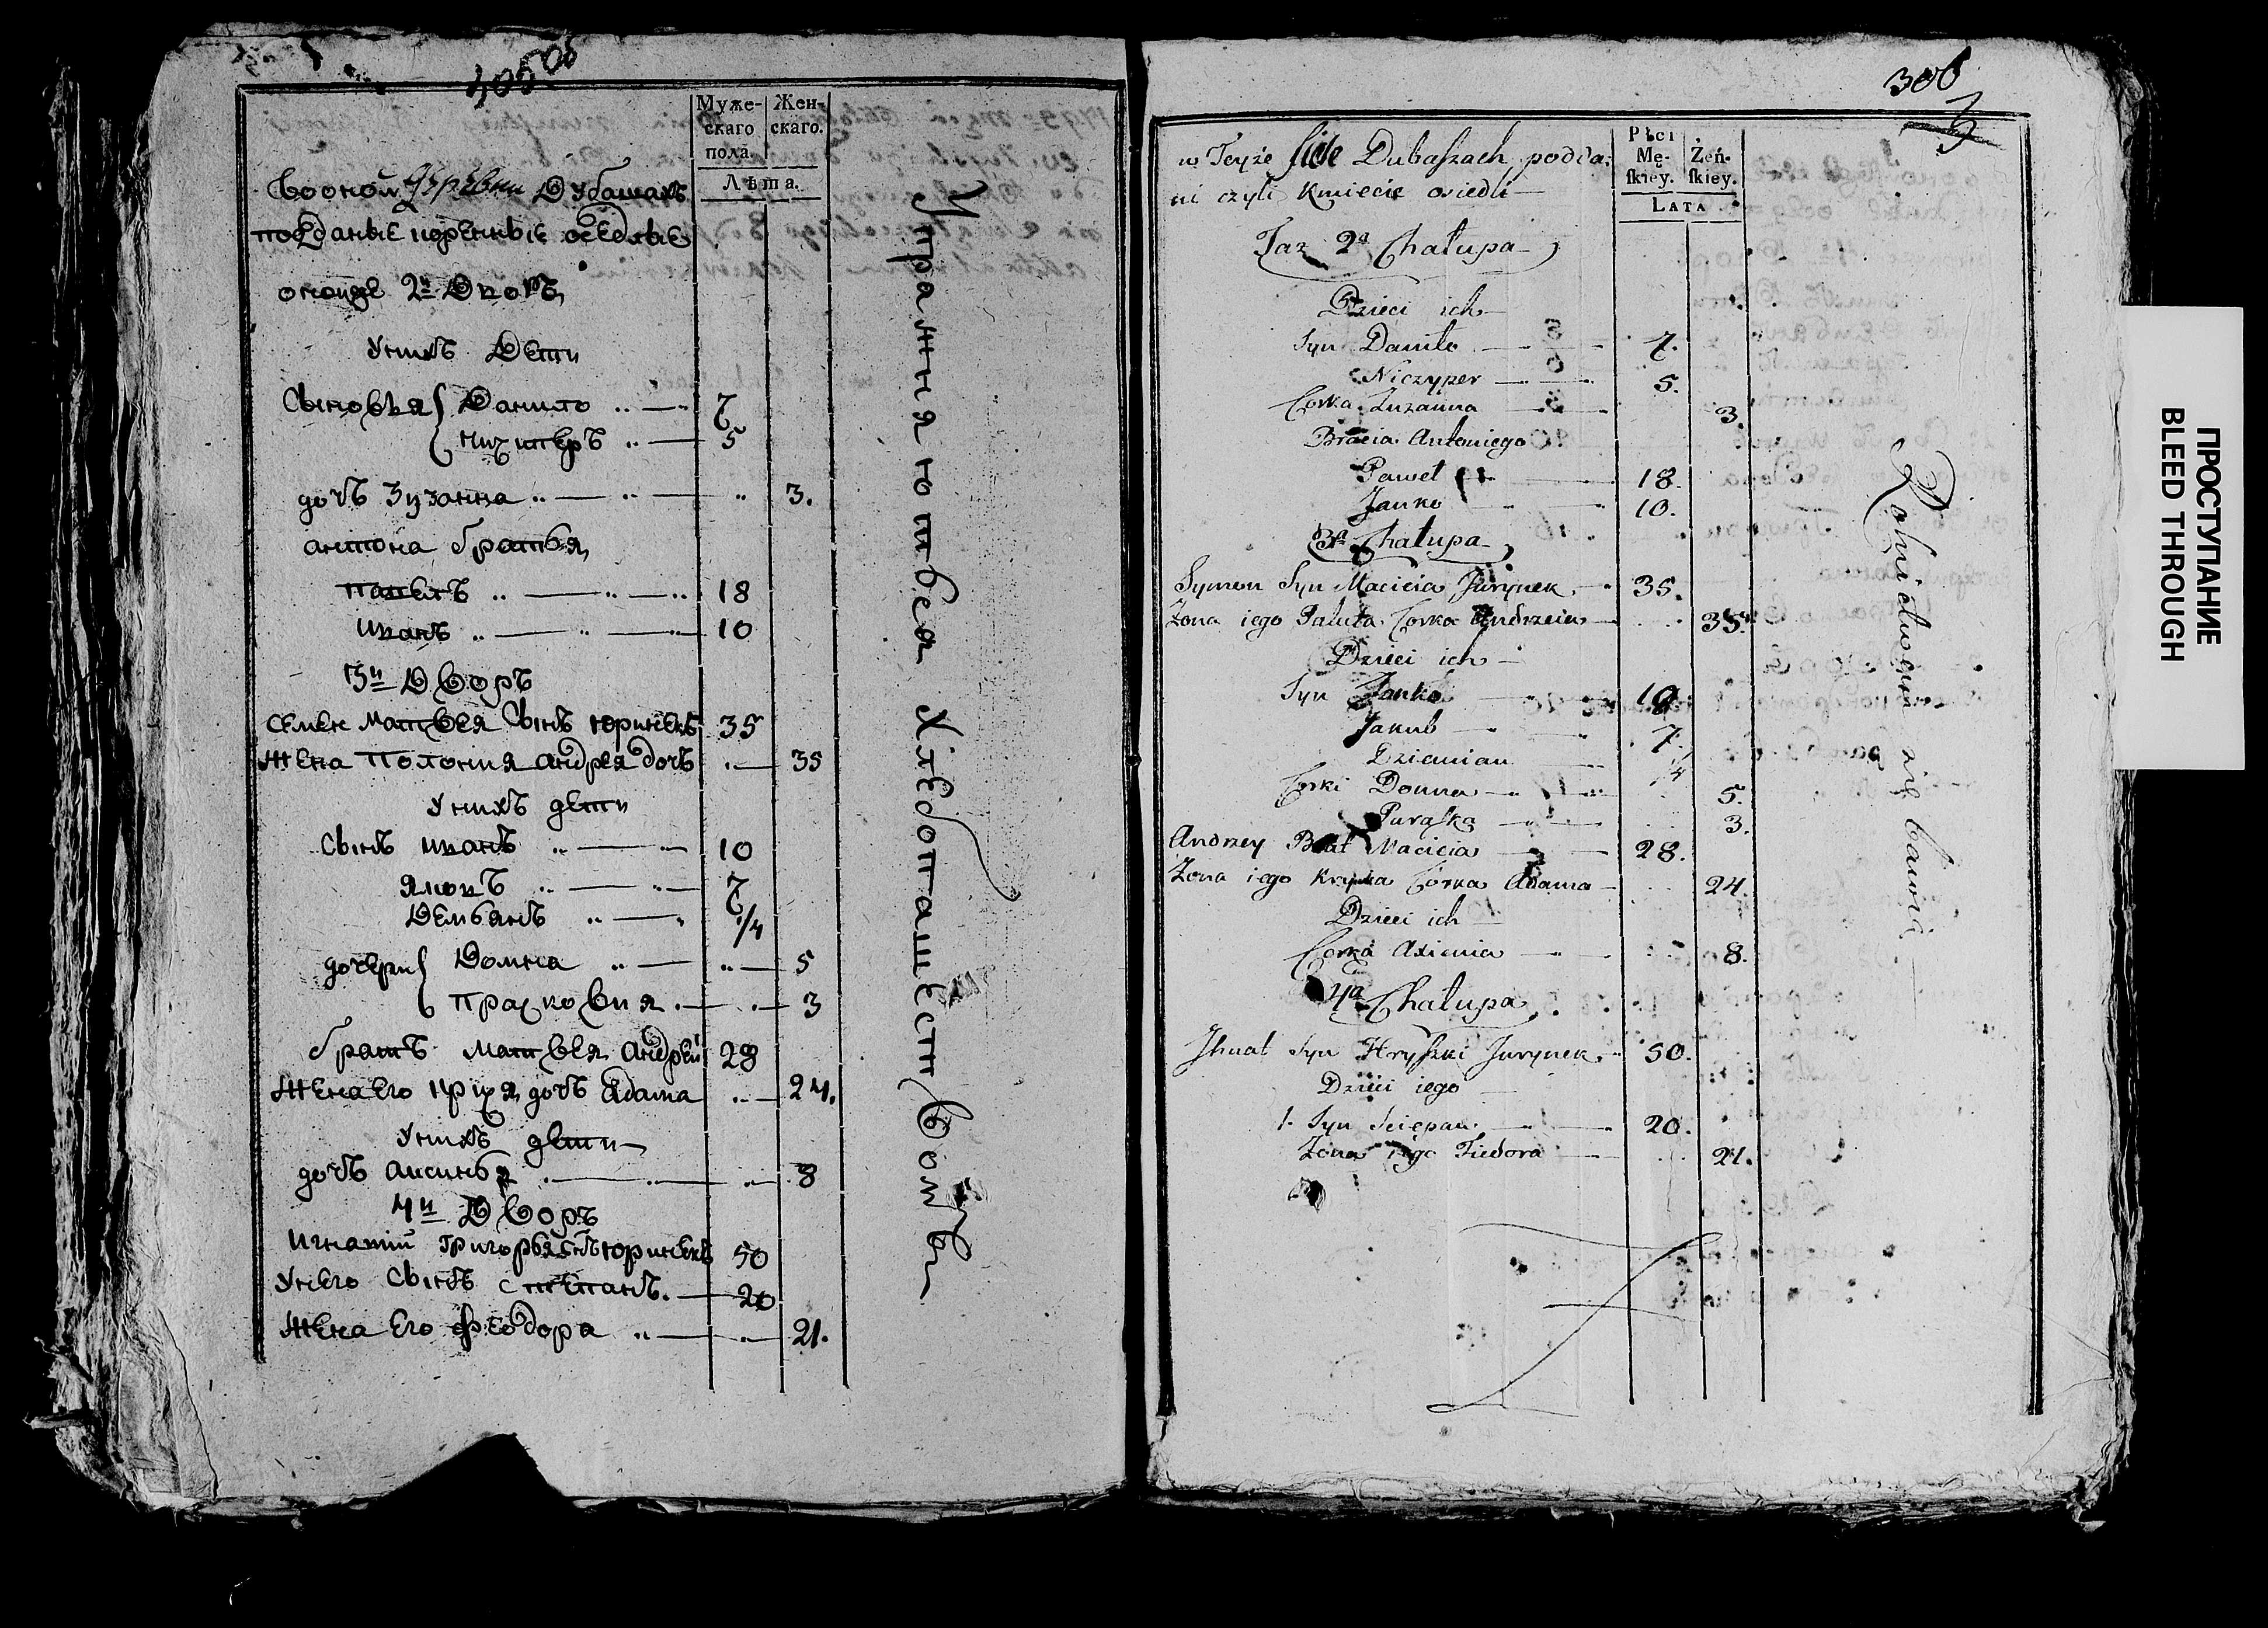 405
Муже-
скаго
пола.
Жен-
скаго.
Лѣта.
Вооной деревни Дубашахъ
подданые коренные оседлые
оноиже 2й Дворъ
Унихъ Дети
Сыновья Данило 7
Ничиперъ 5
дочъ Зузанна 3.
антона братья
павелъ 18
иванъ 10
3й Дворъ
Семен Матвея Сынъ юринекъ 35
Жена Полония андрея дочъ 35
Унихъ дети
Сынъ иванъ 10
яковъ 7
Демьянъ /4
дочери Домна 5
прасковия 3
братъ матвея андрей 28
Жена Его крися дочъ адама 24.
Унихъ дети
дочъ аксинья 8
4й Дворъ
Игнатий григорья Снъ юринекъ 50
Унего Сынъ степанъ. 20
Жена Его феодора 21.
Упражняютвся Хлебопашествомъ
306
w Teyże siele Dubaszach podda:
ni czyli Kmiecie osiedli
Płci
Mę-
skiey.
Żeń-
skiey.
LATA
Taż 2a Chałupa
Dzieci ich
Syn Daniło 7.
Niczyper 5.
Corka Zuzanna 3.
Bracia Antoniego
Paweł 18.
Janko 10.
3a Chałupa
Symon Syn Macieia Jurynek 35.
Zona iego Paluta Corka Andrzeia 35.
Dzieci ich
Syn Janko 10
Jakub 7.
Dziemian /4
Corki Domna 5.
Paraska 3.
Andrzey Brat Macieia 28.
Zona iego Krynka Córka Adama 24.
Dzieci ich
Corka Axienia 8.
4a Chałupa
Jhnat Syn Hryszki Jurynek 50.
Dzieci iego
1. Syn Sciepan 20.
Zona iego Fiedora 21.
Rolnictwem się bawią
ПРОСТУПАНИЕ
BLEED THROUGH